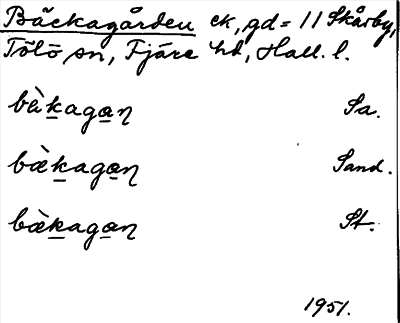 Bäckagården ek, gd = 11 Skårby,
Tölö sn, Fjäre hd, Hall. l.
bàkagaɳ Sa.
bæ̀kagaɳ Sand.
bæ̀kagaɳ St.
1951.